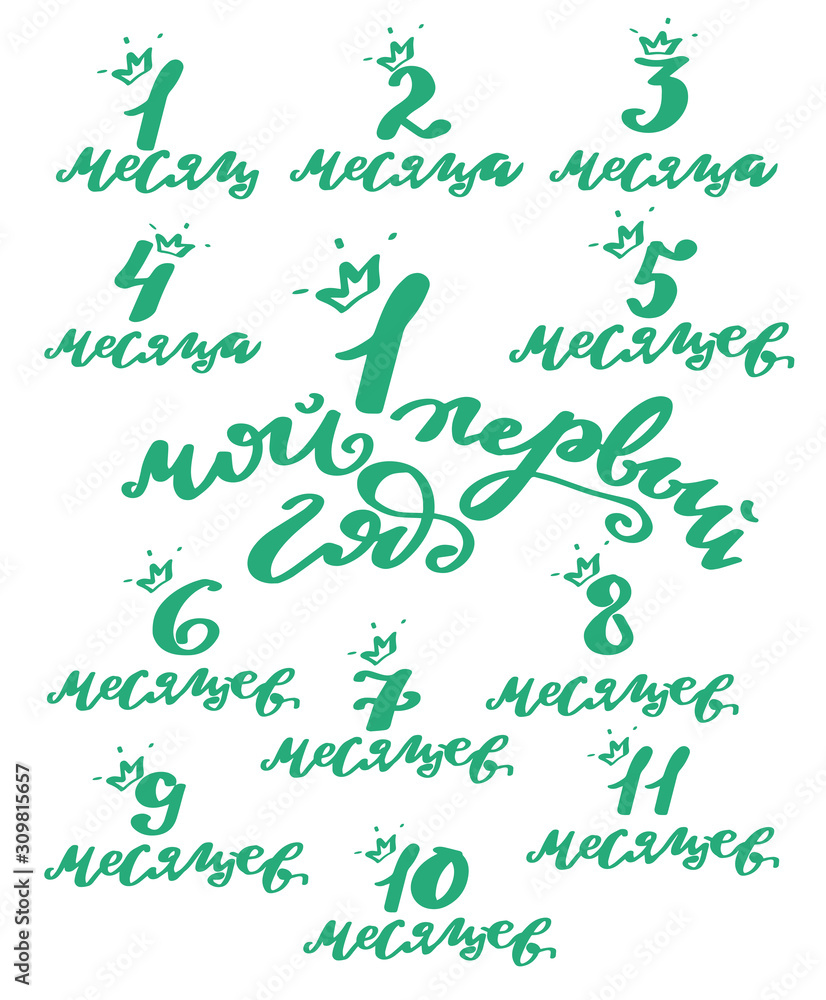 1
месяц
2
месяца
3
месяца
4
месяца
1
мой первый
год
5
месяцев
6
месяцев
7
месяцев
8
месяцев
9
месяцев
10
месяцев
11
месяцев
Adobe Stock | #309815657